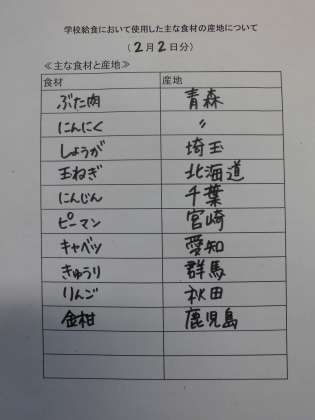 学校給食において使用した主な食材の産地について
(2月2日分)
≪主な食材と産地≫
食材 産地
ぶた肉 青森
にんにく 〃
しょうが 埼玉
玉ねぎ 北海道
にんじん 千葉
ピーマン 宮崎
キャベツ 愛知
きゅうり 群馬
りんご 秋田
金柑 鹿児島